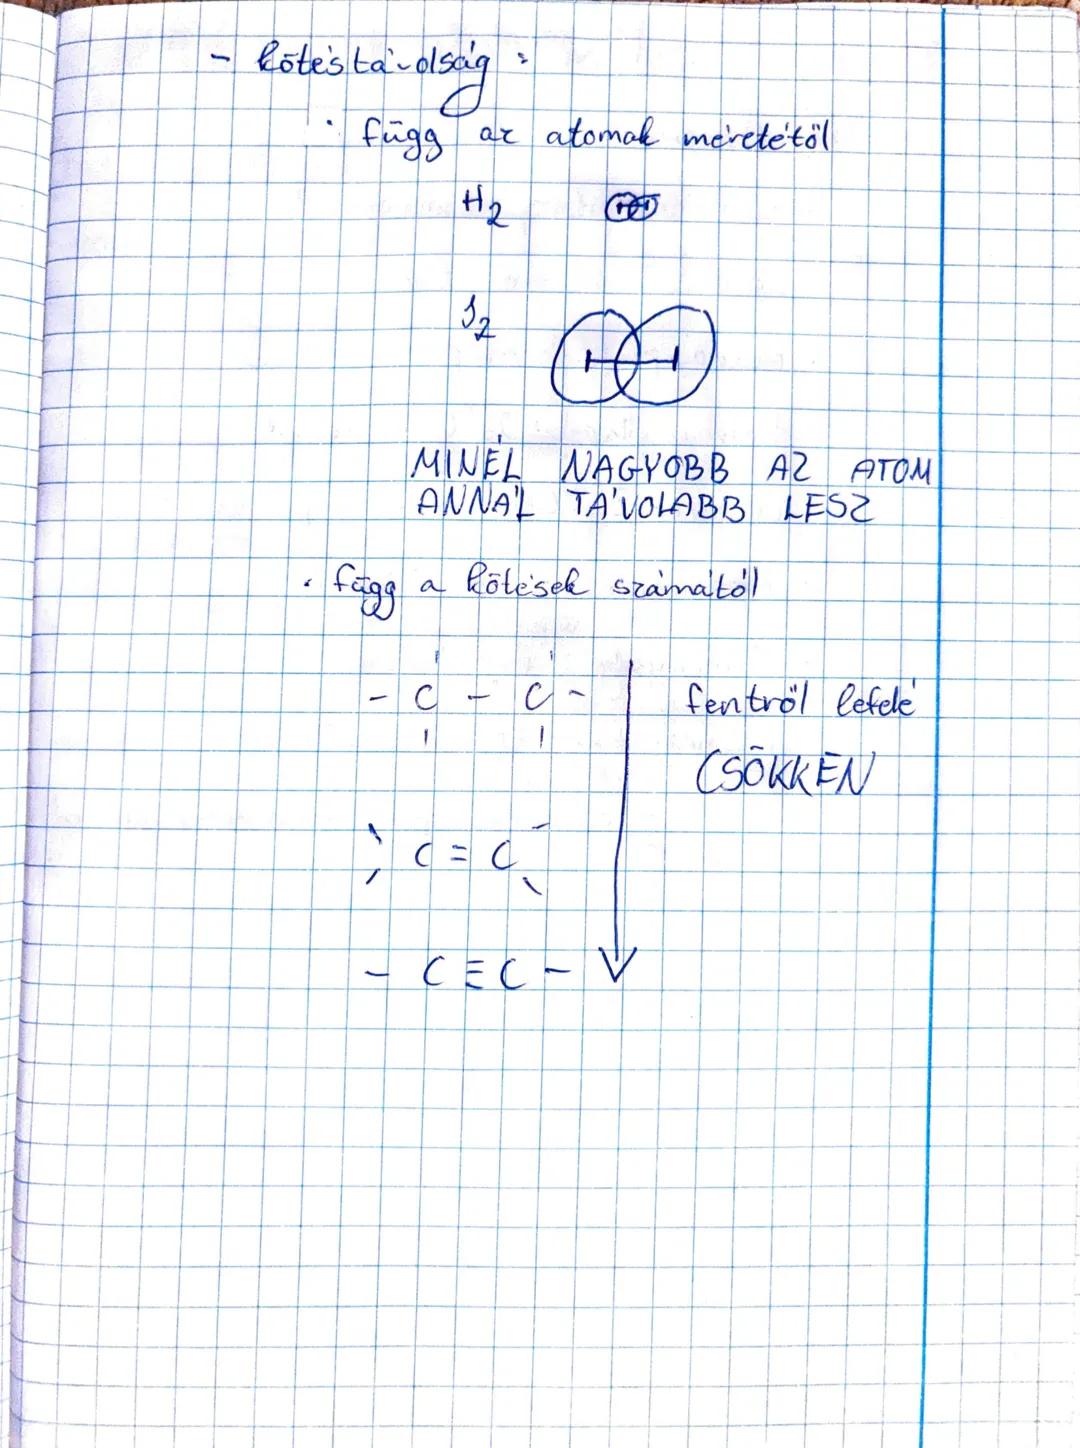 - kötéstávolság:
· függ az atomok méretétől
H2
J2
MINÉL NAGYOBB AZ ATOM
ANNÁL TÁVOLABB LESZ
· függ a kötések számától
- C - C - fentről lefelé
CSÖKKEN
C = C
- C ≡ C -